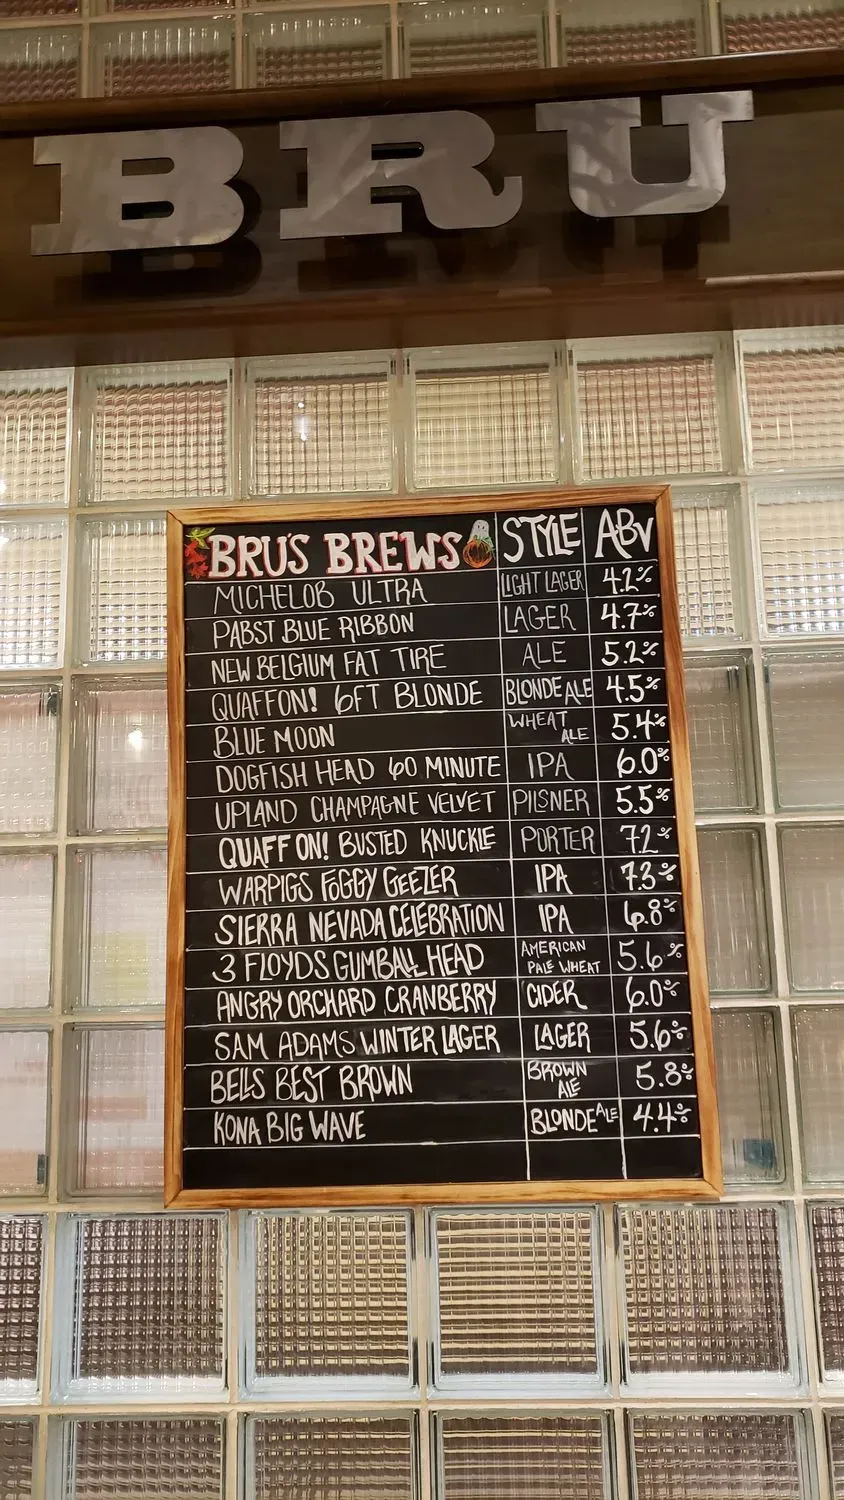 BRU
BRU'S BREWS STYLE ABV
MICHELOB ULTRA LIGHT LAGER 4.2%
PABST BLUE RIBBON LAGER 4.7%
NEW BELGIUM FAT TIRE ALE 5.2%
QUAFFON! 6FT BLONDE BLONDE ALE 4.5%
BLUE MOON WHEAT ALE 5.4%
DOGFISH HEAD 60 MINUTE IPA 6.0%
UPLAND CHAMPAGNE VELVET PILSNER 5.5%
QUAFF ON! BUSTED KNUCKLE PORTER 7.2%
WARPIGS FOGGY GEEZER IPA 7.3%
SIERRA NEVADA CELEBRATION IPA 6.8%
3 FLOYDS GUMBALL HEAD AMERICAN PALE WHEAT 5.6%
ANGRY ORCHARD CRANBERRY CIDER 6.0%
SAM ADAMS WINTER LAGER LAGER 5.6%
BELLS BEST BROWN BROWN ALE 5.8%
KONA BIG WAVE BLONDE ALE 4.4%